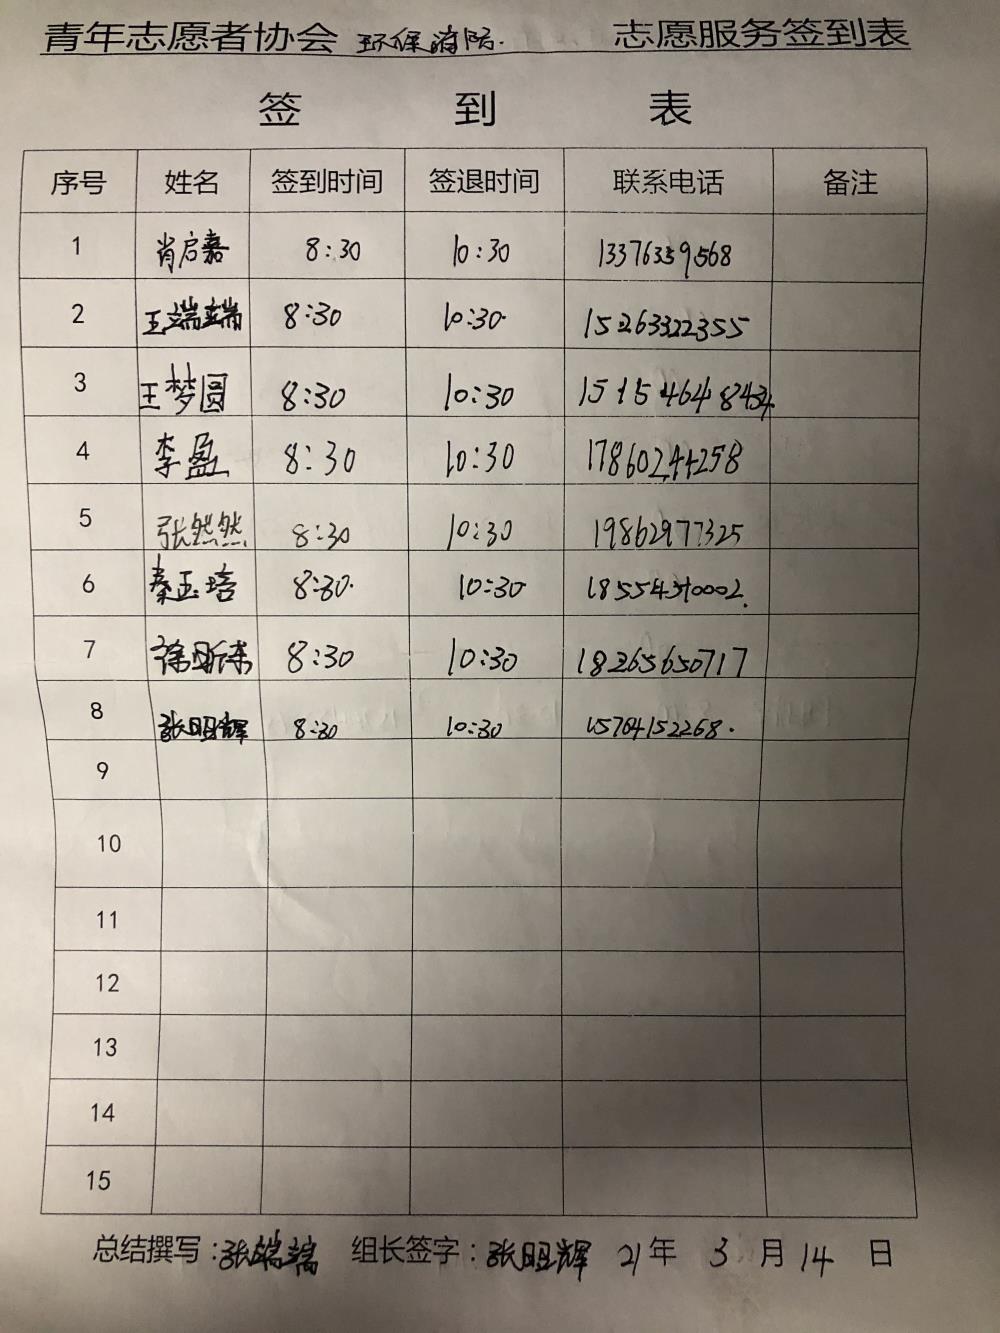 青年志愿者协会 环保消防. 志愿服务签到表
签 到 表
序号 姓名 签到时间 签退时间 联系电话 备注
1 肖启嘉 8:30 10:30 13376339568
2 王端端 8:30 10:30 15263322355
3 王梦圆 8:30 10:30 15154648434
4 李盈 8:30 10:30 17860244258
5 张然然 8:30 10:30 19862977325
6 秦玉培 8:30 10:30 18554310002
7 8:30 10:30 18265650717
8 张明辉 8:30 10:30 15704152268
9
10
11
12
13
14
15
总结撰写:张端端 组长签字:张明辉 21年 3 月 14 日